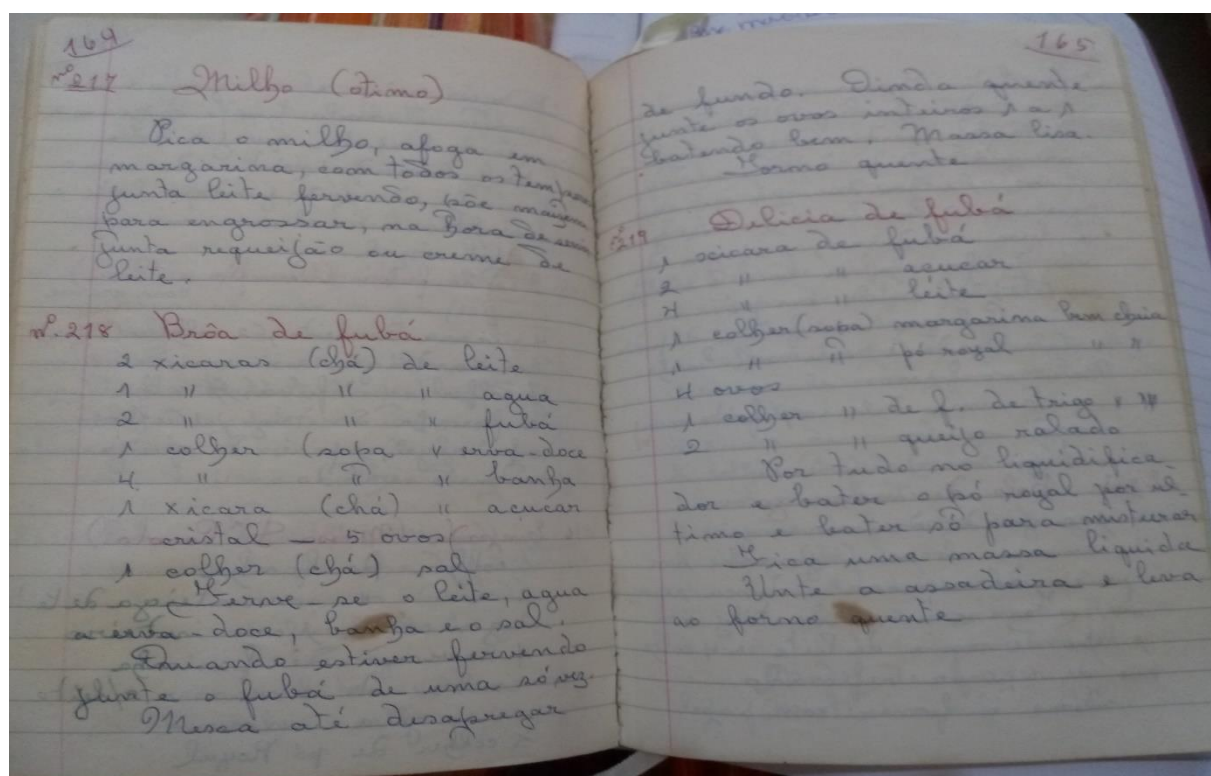 164
nº 217 Milho (otimo)
Pica o milho, afoga em
margarina, com todos os temperos
junta leite fervendo, põe maizena
para engrossar, na hora de servir
junta requeijão ou creme de
leite.
nº. 218 Brôa de fubá
2 xicaras (chá) de leite
1 " " " agua
2 " " " fubá
1 colher (sopa " erva-doce
4 " " " banha
1 xicara (chá) " açucar
cristal - 5 ovos
1 colher (chá) sal
Ferve-se o leite, agua
a erva-doce, banha e o sal.
Quando estiver fervendo
junte o fubá de uma só vez.
Mexa até desapregar
165
de fundo. Ainda quente
junte os ovos inteiros 1 a 1
batendo bem. Massa lisa.
Forno quente
219 Delicia de fubá
1 xicara de fubá
2 " " açucar
4 " " leite
1 colher (sopa) margarina bem cheia
1 " " pó royal " "
4 ovos
1 colher " de f. de trigo " "
2 " " queijo ralado
Por tudo no liquidifica
dor e bater o pó royal por ul-
timo e bater só para misturar
Fica uma massa liquida
Unte a assadeira e leva
ao forno quente